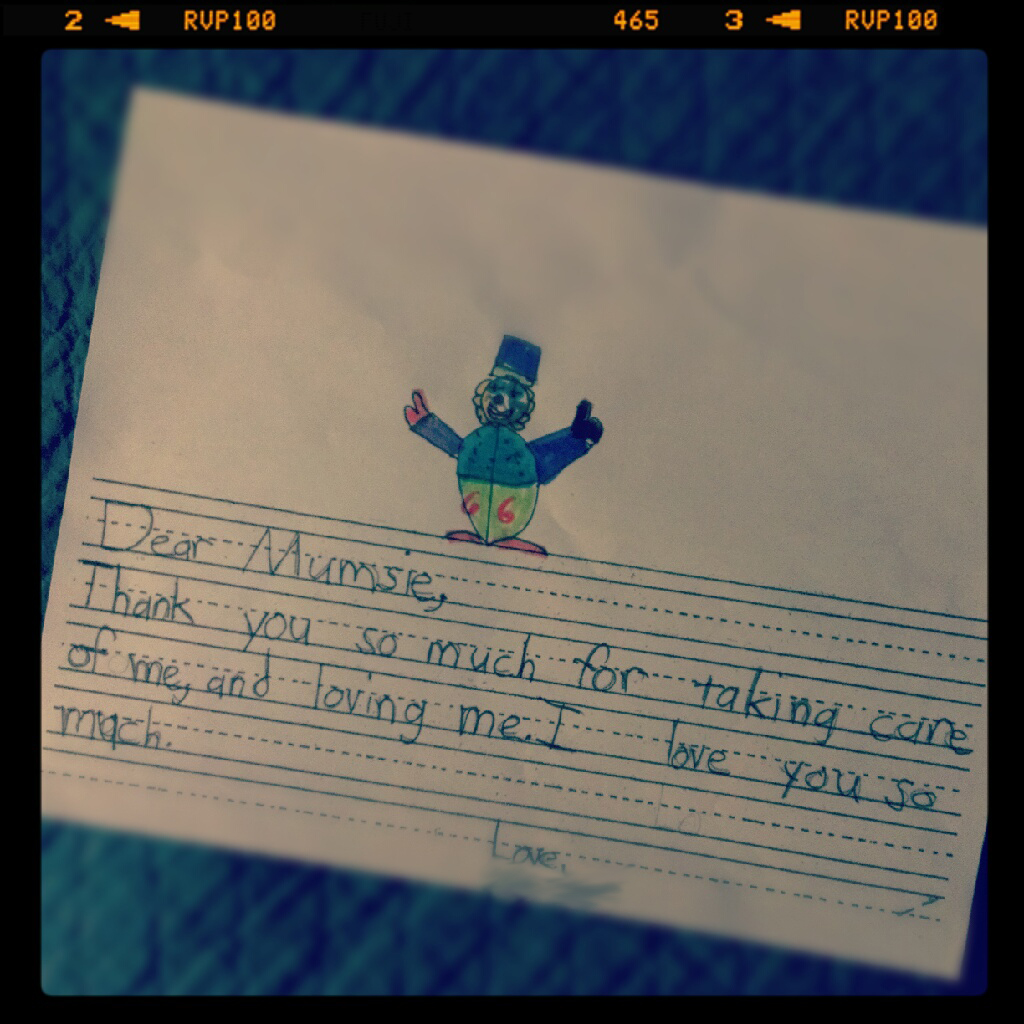 2 RVP100 465 3 RVP100
6 6
Dear Mumsie,
Thank you so much for taking care
of me, and loving me. I love you so
much.
Love,